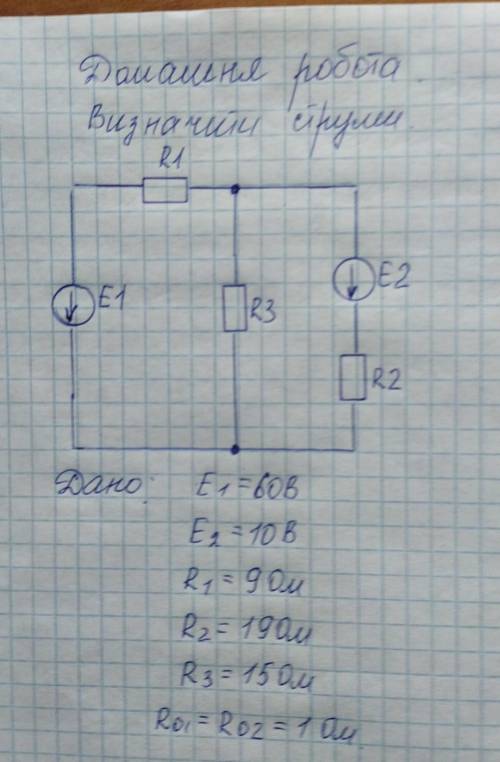 Домашня робота.
Визначити струми.
R1
E1
R3
E2
R2
Дано: E1 = 60В
E2 = 10В
R1 = 9 Ом
R2 = 19 Ом
R3 = 15 Ом
R01 = R02 = 1 Ом.